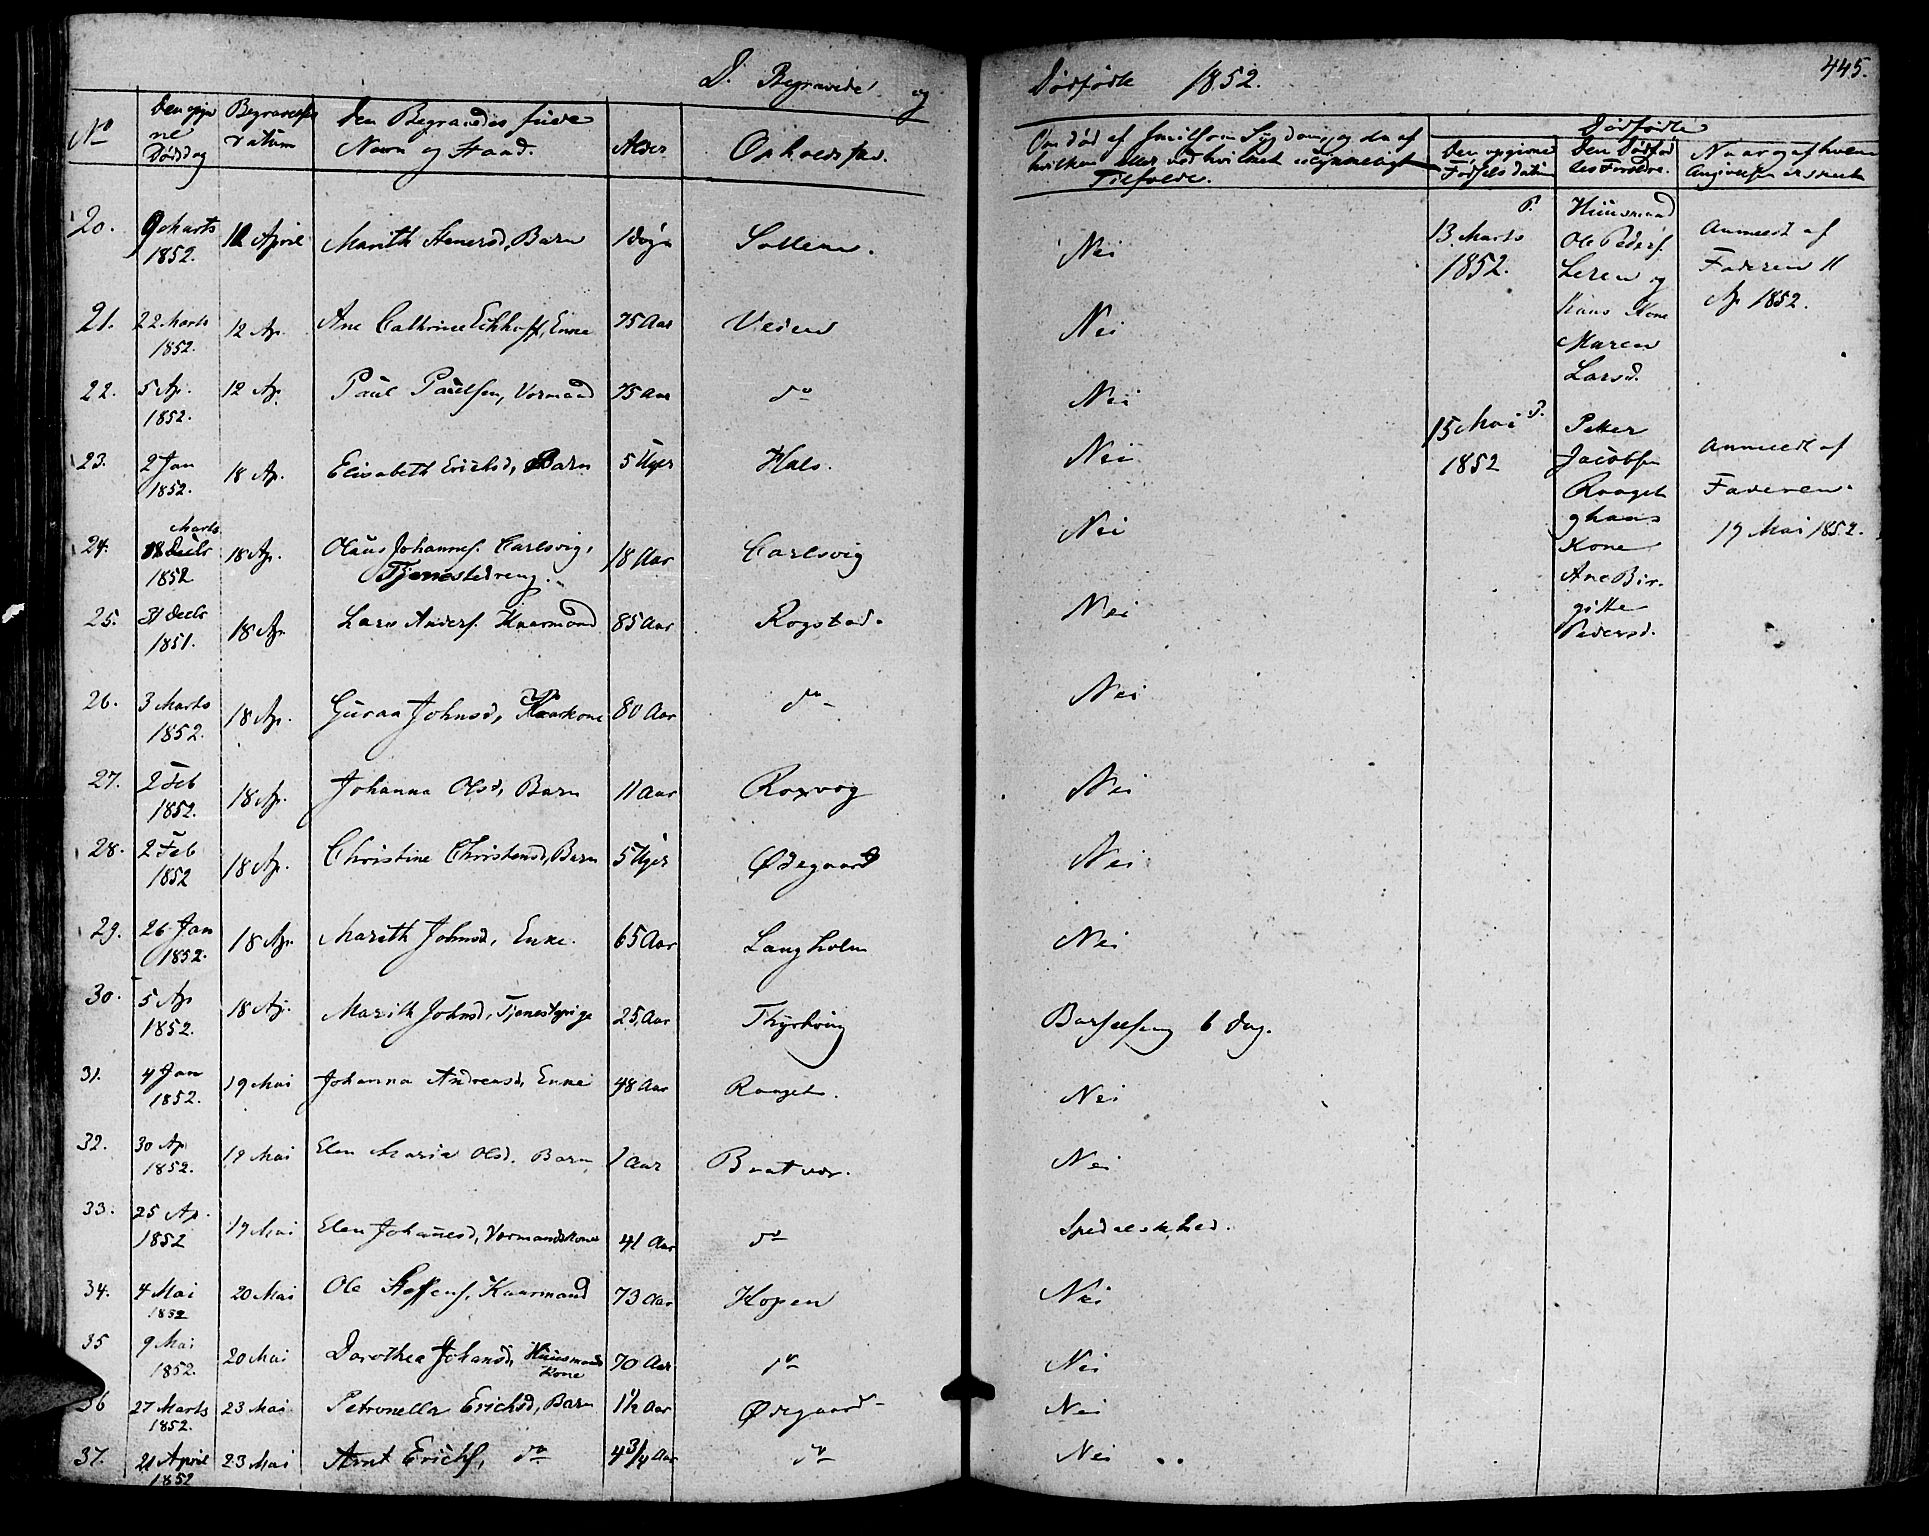 D. Begravede og
Dødfødte 1852.
445.
No
Den opgivne Dødsdag
Begravelses Datum
Den Begravedes fulde Navn og Stand.
Alder
Opholdssted.
Om død af smitsom Sygdom, og da af hvilken eller ved hvilket ulykkeligt Tilfælde.
Dødfødte
Den opgivne Fødsels datum
Den Dødfødtes Forældre.
Naar og af hvem Angivelsen er skeet
20. 9 Marts 1852. 12 April Marith Stenersd, Barn 1 Døgn Nei
21. 22 Marts 1852. 12 Ap. Ane Cathrine Eckhoff, Enke 75 Aar Veien Nei
22. 5 Ap. 1852. 12 Ap. Paul Paulsen, Vormand 75 Aar do Nei
23. 2 Jan 1852. 18 Ap. Elisabeth Erichsd, Barn 5 Uger Hals. Nei
24. 18 Marts 1852 18 Ap. Olaus Johannes. Carlsvig, Tjenestedreng. 18 Aar Carlsvig Nei
25. 31 Decbr 1851. 18 Ap. Lars Anders. Kaarmand 85 Aar Rogstad. Nei
26. 3 Marts 1852. 18 Ap. Guraa Johnsd, Kaarkone 80 Aar do Nei
27. 2 Feb 1852. 18 Ap. Johanna Olsd, Barn 11 Aar Roxvog Nei
28. 2 Feb 1852 18 Ap. Christine Christensd, Barn 5 Uger Ødegaard Nei
29. 26 Jan 1852. 18 Ap. Marith Johnsd, Enke. 65 Aar Langholm Nei
30. 5 Ap 1852. 18 Ap. Marith Johnsd, Tjenestepige 25 Aar Barselseng 6 Dag.
31. 4 Jan 1852. 19 Mai Johanna Andreasd, Enke 48 Aar Raaget. Nei
32. 30 Ap 1852. 19 Mai Elen Maria Olsd. Barn 1 Aar Bratvær. Nei
33. 25 Ap. 1852 19 Mai Elen Johannesd, Vormandskone 41 Aar do Spedalskhed.
34. 4 Mai 1852 20 Mai Ole Steffens, Kaarmand 73 Aar Hopen Nei
35 9 Mai 1852. 20 Mai Dorothea Johansd, Huusmands Kone 70 Aar do Nei
36 27 Marts 1852. 23 Mai Petronella Erichsd, Barn 1½ Aar Ødegaard Nei
37. 21 April 1852 23 Mai Arnt Erichs, do 4 3/4 Aar do Nei
13 Marts P. 1852.
Huusmand
Ole Peders.
Leren og
Hans Kone
Maren
Larsd.
Anmeldt af
Faderen 11
Ap 1852.
15 Mai P. 1852
Petter
Jacobsen
Raaget
og hans
Kone
Ane Bir-
gitte
Pedersd.
Anmeldt af
Faderen
19 Mai 1852.